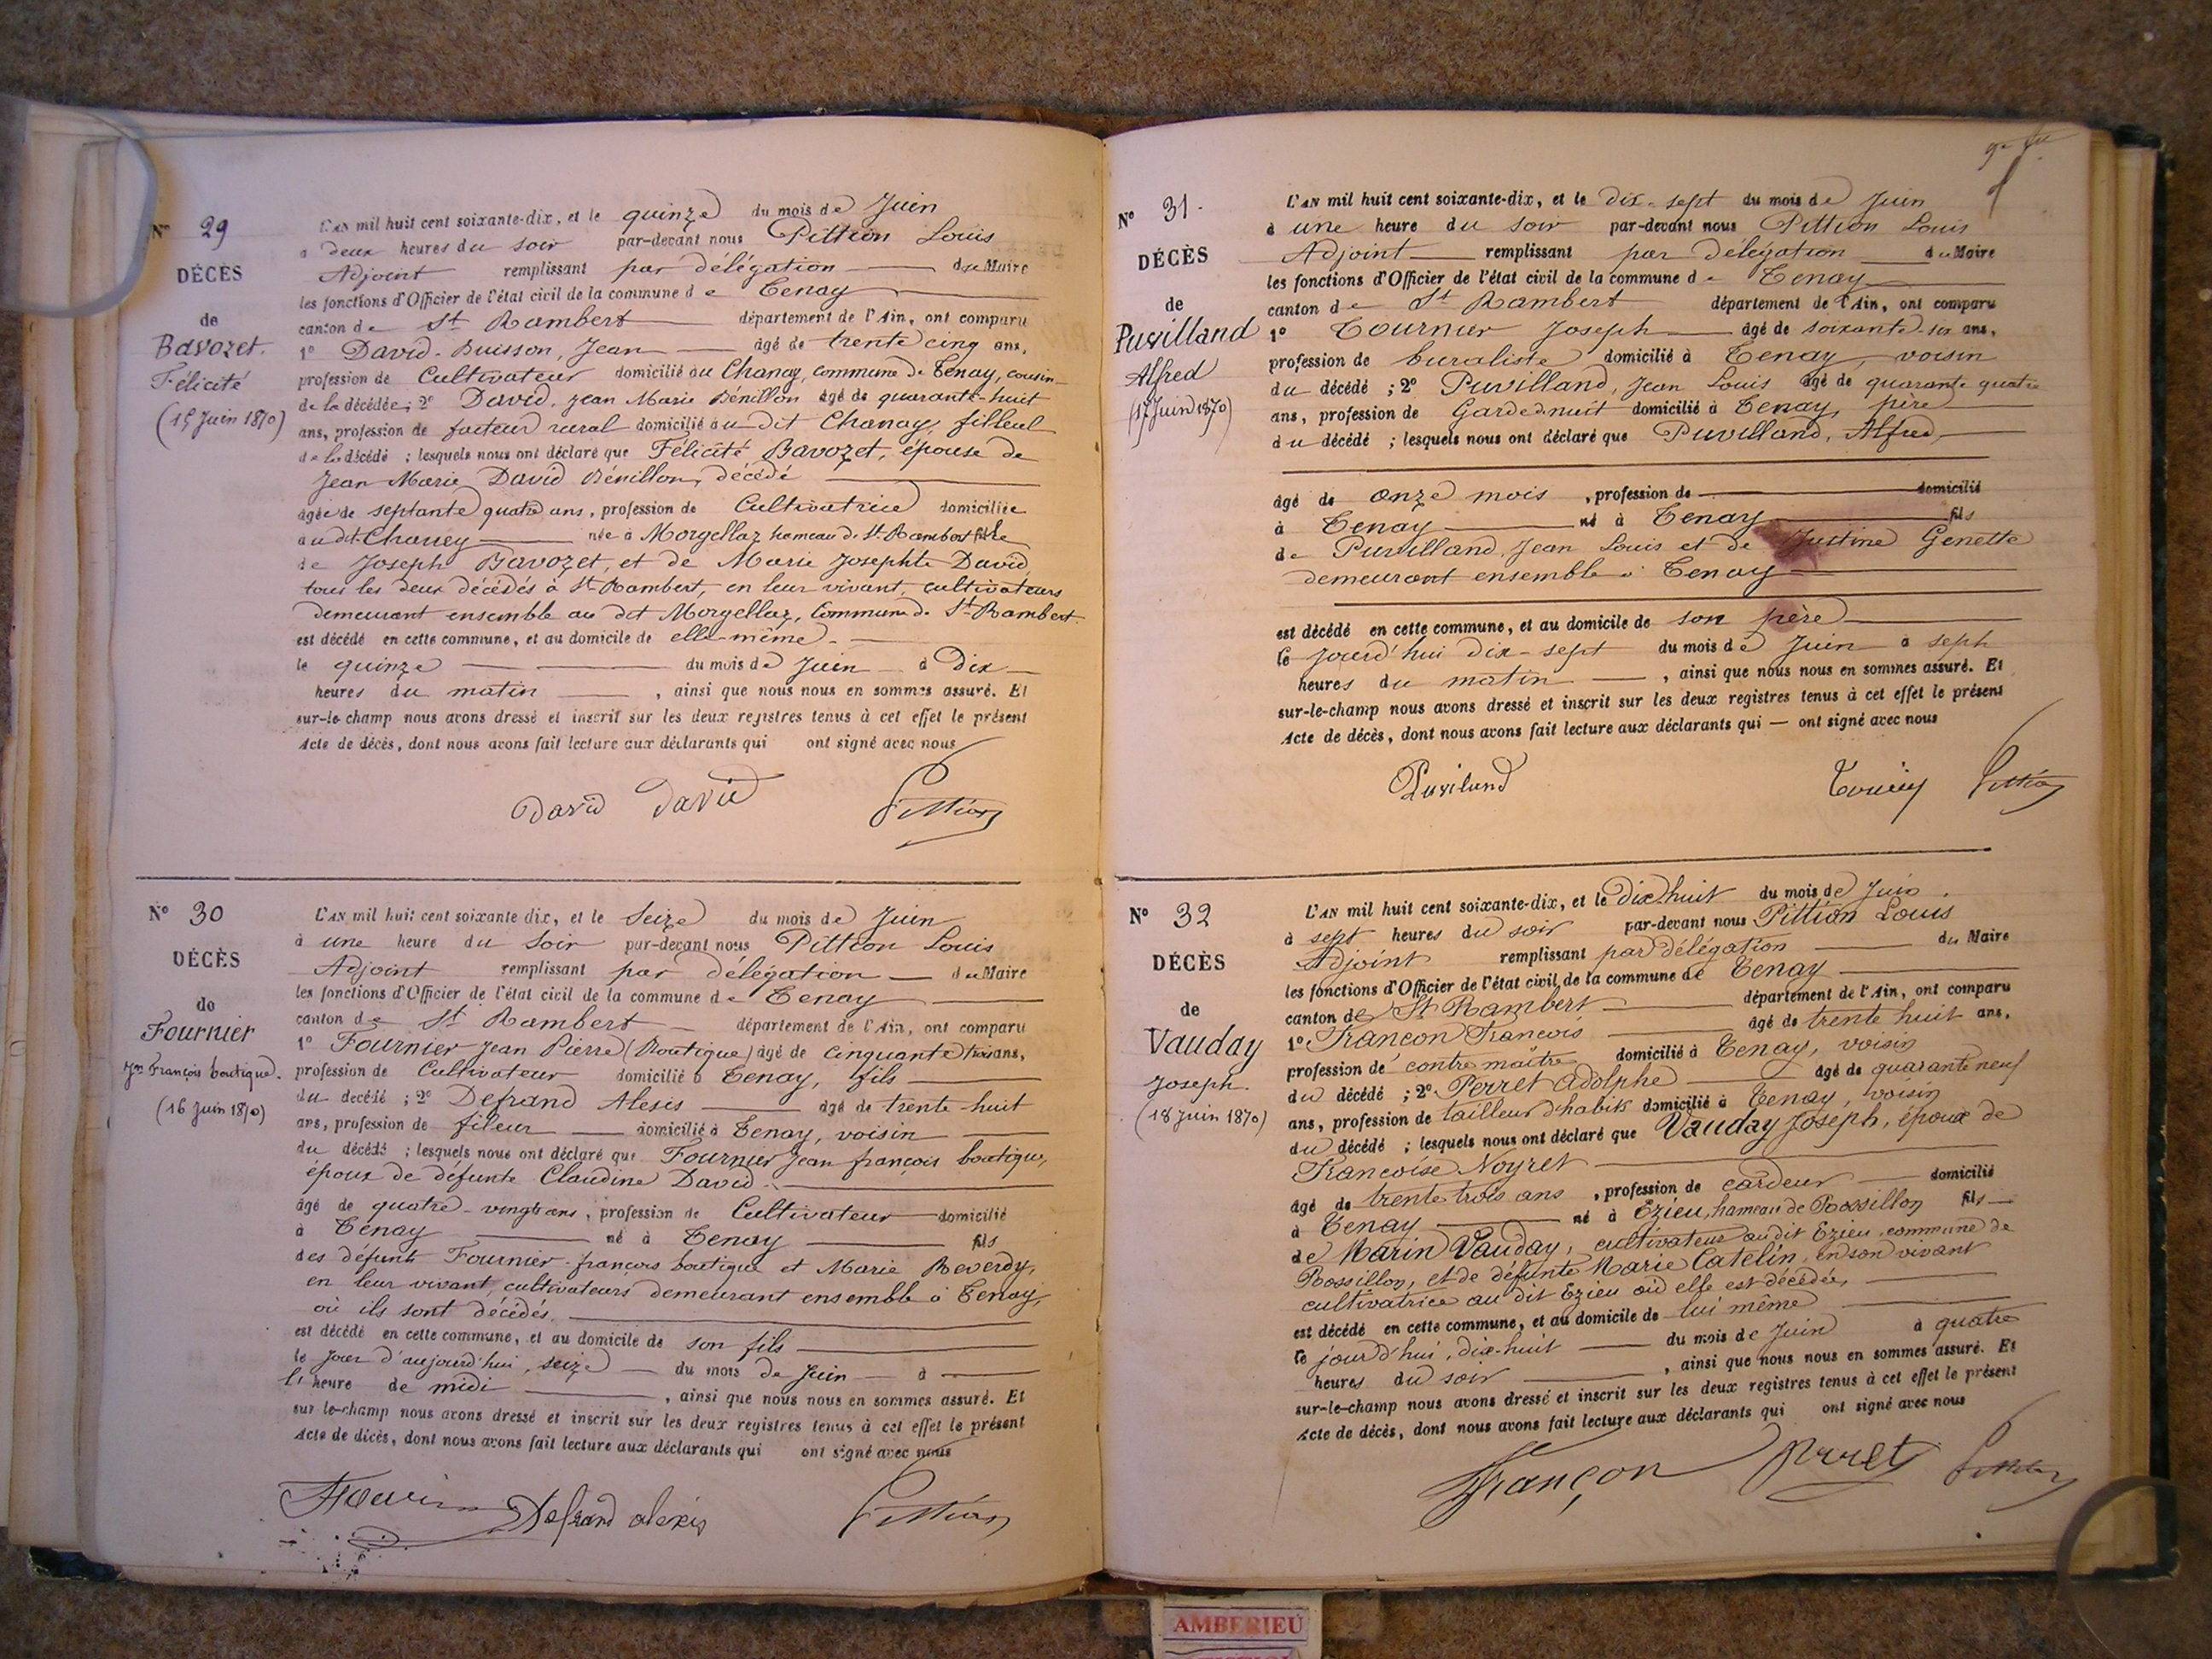 N° 29
DÉCÈS
de
Bavozet.
Félicité
(15 Juin 1870)
L'AN mil huit cent soixante-dix, et le quinze du mois de Juin
à deux heures du soir par-devant nous Pittion Louis
Adjoint remplissant par délégation du Maire
les fonctions d'Officier de l'état civil de la commune de Tenay
canton de St Rambert département de l'Ain, ont comparu
1° David-Buisson, Jean âgé de trente cinq ans,
profession de Cultivateur domicilié au Chanay, commune de Tenay, cousin
de la décédée; 2° David, Jean Marie Bénillon âgé de quarante-huit
ans, profession de facteur rural domicilié au dit Chanay, filleul
de la décédé ; lesquels nous ont déclaré que Félicité Bavozet, épouse de
Jean Marie David Bénillon, décédé
âgée de septante quatre ans, profession de Cultivatrice domiciliée
au dit Chaney née à Morgellaz hameau de St Rambert fille
de Joseph Bavozet, et de Marie Josephte David,
tous les deux décédés à St Rambert, en leur vivant, cultivateurs
demeurant ensemble au dit Morgellaz, Commune de St Rambert
est décédé en cette commune, et au domicile de elle-même
le quinze du mois de Juin à dix
heures du matin , ainsi que nous nous en sommes assuré. Et
sur-le-champ nous avons dressé et inscrit sur les deux registres tenus à cet effet le présent
Acte de décès, dont nous avons fait lecture aux déclarants qui ont signé avec nous
David David Pittion
N° 30
DÉCÈS
de
Fournier
Jn François boutique.
(16 Juin 1870)
L'AN mil huit cent soixante dix, et le Seize du mois de Juin
à une heure du Soir par-devant nous Pittion Louis
Adjoint remplissant par délégation du Maire
les fonctions d'Officier de l'état civil de la commune de Tenay
canton de St Rambert département de l'Ain, ont comparu
1° Fournier Jean Pierre (Boutique) âgé de Cinquante trois ans,
profession de Cultivateur domicilié à Tenay, fils
du décédé ; 2° Defrand Alexis âgé de trente huit
ans, profession de fileur domicilié à Tenay, voisin
du décédé ; lesquels nous ont déclaré que Fournier Jean françois boutique,
époux de défunte Claudine David
âgé de quatre-vingt ans, profession de Cultivateur domicilié
à Tenay né à Tenay fils
des défunts Fournier françois boutique et Marie Reverdy,
en leur vivant, cultivateurs demeurant ensemble à Tenay
où ils sont décédés.
est décédé en cette commune, et au domicile de son fils
le Jour d'aujourd'hui, seize du mois de Juin à
l'heure de midi , ainsi que nous nous en sommes assuré. Et
sur le-champ nous avons dressé et inscrit sur les deux registres tenus à cet effet le présent
Acte de décès, dont nous avons fait lecture aux déclarants qui ont signé avec nous
Defrand alexis Pittion
N° 31
DÉCÈS
de
Puvilland
Alfred
(17 Juin 1870)
L'AN mil huit cent soixante-dix, et le dix-sept du mois de Juin
à une heure du soir par-devant nous Pittion Louis
Adjoint remplissant par délégation du Maire
les fonctions d'Officier de l'état civil de la commune de Tenay
canton de St Rambert département de l'Ain, ont comparu
1° Tournier Joseph âgé de soixante-six ans,
profession de buraliste domicilié à Tenay, voisin
du décédé ; 2° Puvilland, Jean Louis âgé de quarante quatre
ans, profession de Garde de nuit domicilié à Tenay, père
du décédé ; lesquels nous ont déclaré que Puvilland, Alfred,
âgé de onze mois , profession de domicilié
à Tenay né à Tenay fils
de Puvilland, Jean Louis et de Justine Genette
demeurant ensemble à Tenay
est décédé en cette commune, et au domicile de son père
le Jourd'hui dix-sept du mois de Juin à sept
heures du matin , ainsi que nous nous en sommes assuré. Et
sur-le-champ nous avons dressé et inscrit sur les deux registres tenus à cet effet le présent
Acte de décès, dont nous avons fait lecture aux déclarants qui ont signé avec nous
Puviland Pittion
N° 32
DÉCÈS
de
Vauday
Joseph.
(18 Juin 1870)
L'AN mil huit cent soixante-dix, et le dix-huit du mois de Juin.
à sept heures du soir par-devant nous Pittion Louis
Adjoint remplissant par délégation du Maire
les fonctions d'Officier de l'état civil de la commune de Tenay
canton de St Rambert département de l'Ain, ont comparu
1° Françon François âgé de trente huit ans,
profession de contre maître domicilié à Tenay, voisin
du décédé ; 2° Perret Adolphe âgé de quarante neuf
ans, profession de tailleur d'habits domicilié à Tenay, voisin
du décédé ; lesquels nous ont déclaré que Vauday Joseph, époux de
Françoise Noyret
âgé de trente trois ans , profession de cardeur domicilié
à Tenay né à Ezieu, hameau de Rossillon fils
de Marin Vauday, cultivateur au dit Ezieu, commune de
Rossillon, et de défunte Marie Catelin, en son vivant
cultivatrice au dit Ezieu où elle est décédée,
est décédé en cette commune, et au domicile de lui même
le jourd'hui, dix-huit du mois de Juin à quatre
heures du soir , ainsi que nous nous en sommes assuré. Et
sur-le-champ nous avons dressé et inscrit sur les deux registres tenus à cet effet le présent
Acte de décès, dont nous avons fait lecture aux déclarants qui ont signé avec nous
Françon Perret Pittion
AMBERIEU